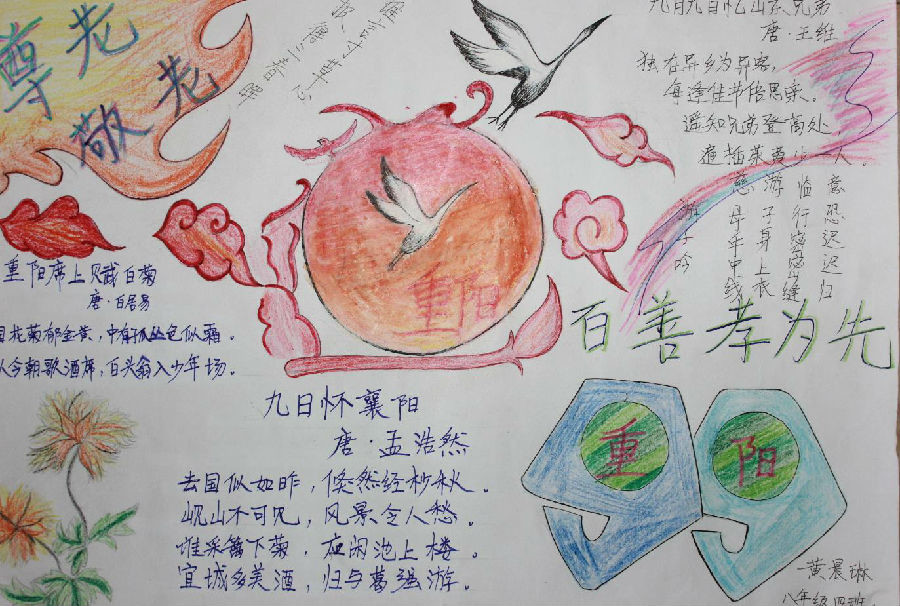 尊老
敬老
谁言寸草心
报得三春晖
九月九日忆山东兄弟
唐·王维
独在异乡为异客，
每逢佳节倍思亲。
遥知兄弟登高处
遍插茱萸少一人。
游子吟
慈母手中线
游子身上衣
临行密密缝
意恐迟迟归
重阳席上赋白菊
唐·白居易
园花菊郁金黄，中有孤丛色似霜。
从今朝歌酒席，白头翁入少年场。
重阳
百善孝为先
九日怀襄阳
唐·孟浩然
去国似如昨，倏然经杪秋。
岘山不可见，风景令人愁。
谁采篱下菊，应闲池上楼。
宜城多美酒，归与葛强游。
重
阳
黄晨琳
八年级四班